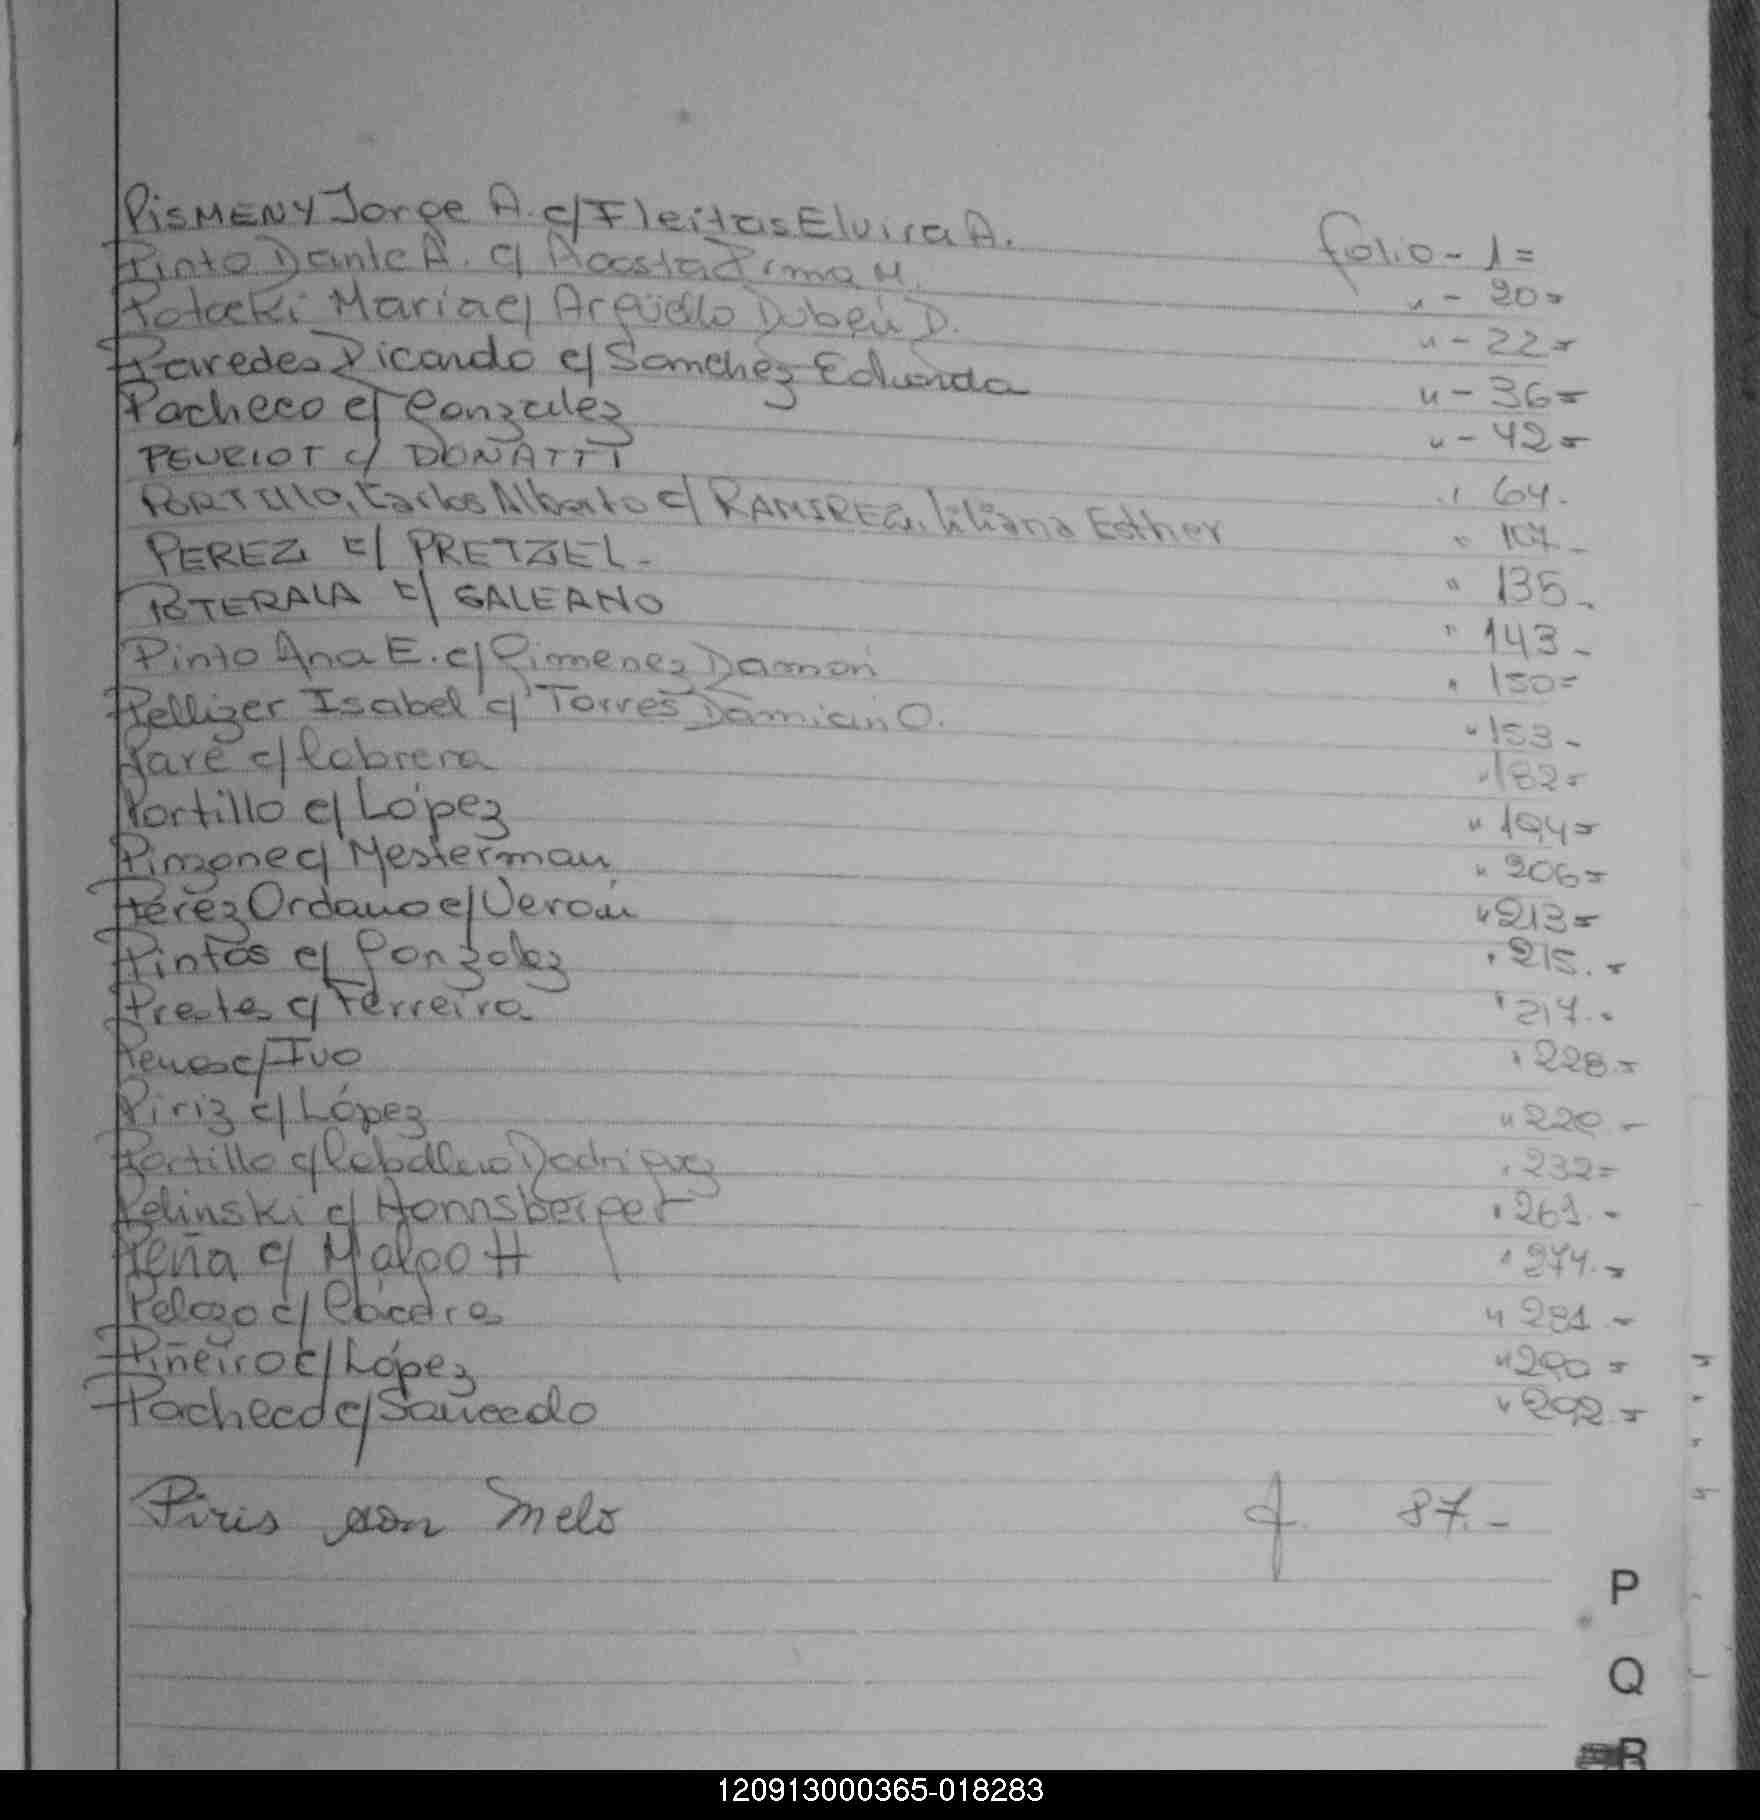 PISMENY Jorge A. c/ Fleitas Elvira A. folio - 1=
Pinto Dante A. c/ Acosta Irma M. " - 20=
Potocki Maria c/ Argüello Rubén D. " - 22=
Paredes Ricardo c/ Sanchez Eduarda " - 36=
Pacheco c/ Gonzalez " - 42=
PEURIOT c/ DONATTI " 64.
PORTILLO, Carlos Alberto c/ RAMIREZ, Liliana Esther " 107_
PEREZ c/ PRETZEL- " 135_
POTERALA c/ GALEANO " 143_
Pinto Ana E. c/ Gimenez Ramón " 150=
Pellizer Isabel c/ Torres Damián O. " 153-
Paré c/ Cabrera " 182=
Portillo c/ López " 194=
Pinzone c/ Mesterman " 206=
Pérez Ordano c/ Verón " 213=
Pintos c/ Gonzalez " 215.=
Prestes c/ Ferreira " 217.-
c/ Ivo " 228.=
Piriz c/ López " 229.-
Portillo c/ Caballero Rodriguez " 232=
Pelinski c/ Hannsberger " 261.-
Peña c/ H " 274.=
Pelozo c/ " 281.-
Piñeiro c/ López " 290=
Pacheco c/ Saucedo " 292.=
Piris con Melo f. 87.-
P
Q
R
120913000365-018283